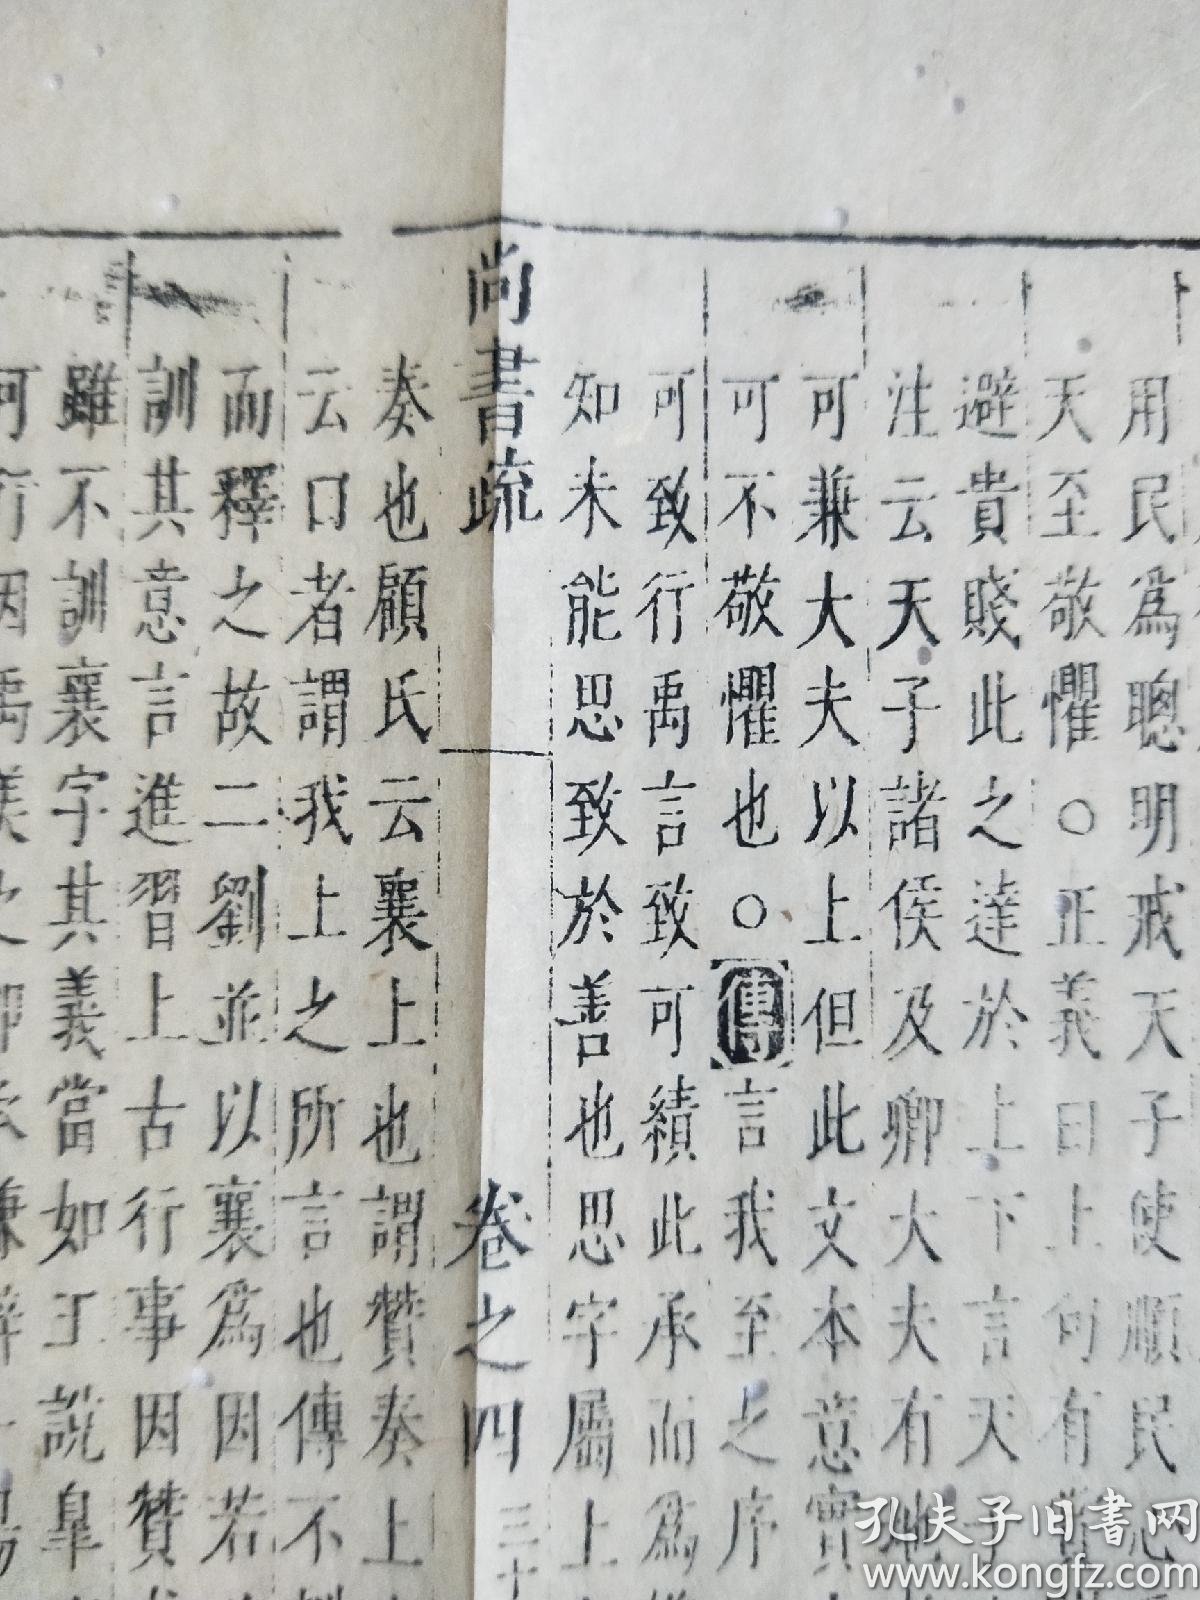 用民為聰明戒天子使順民
天至敬懼○正義曰上句有
避貴賤此之達於上下言天
注云天子諸侯及卿大夫有地
可兼大夫以上但此文本意實
可不敬懼也○傳言我至之序
可致行禹言致可績此承而為
知未能思致於善也思字屬上
尚書疏 卷之四 三十
奏也顧氏云襄上也謂贊奏上
云口者謂我上之所言也傳不
而釋之故二劉並以襄為因若
訓其意言進習上古行事因贊
雖不訓襄字其義當如王說皐
孔夫子旧书网
www.kongfz.com